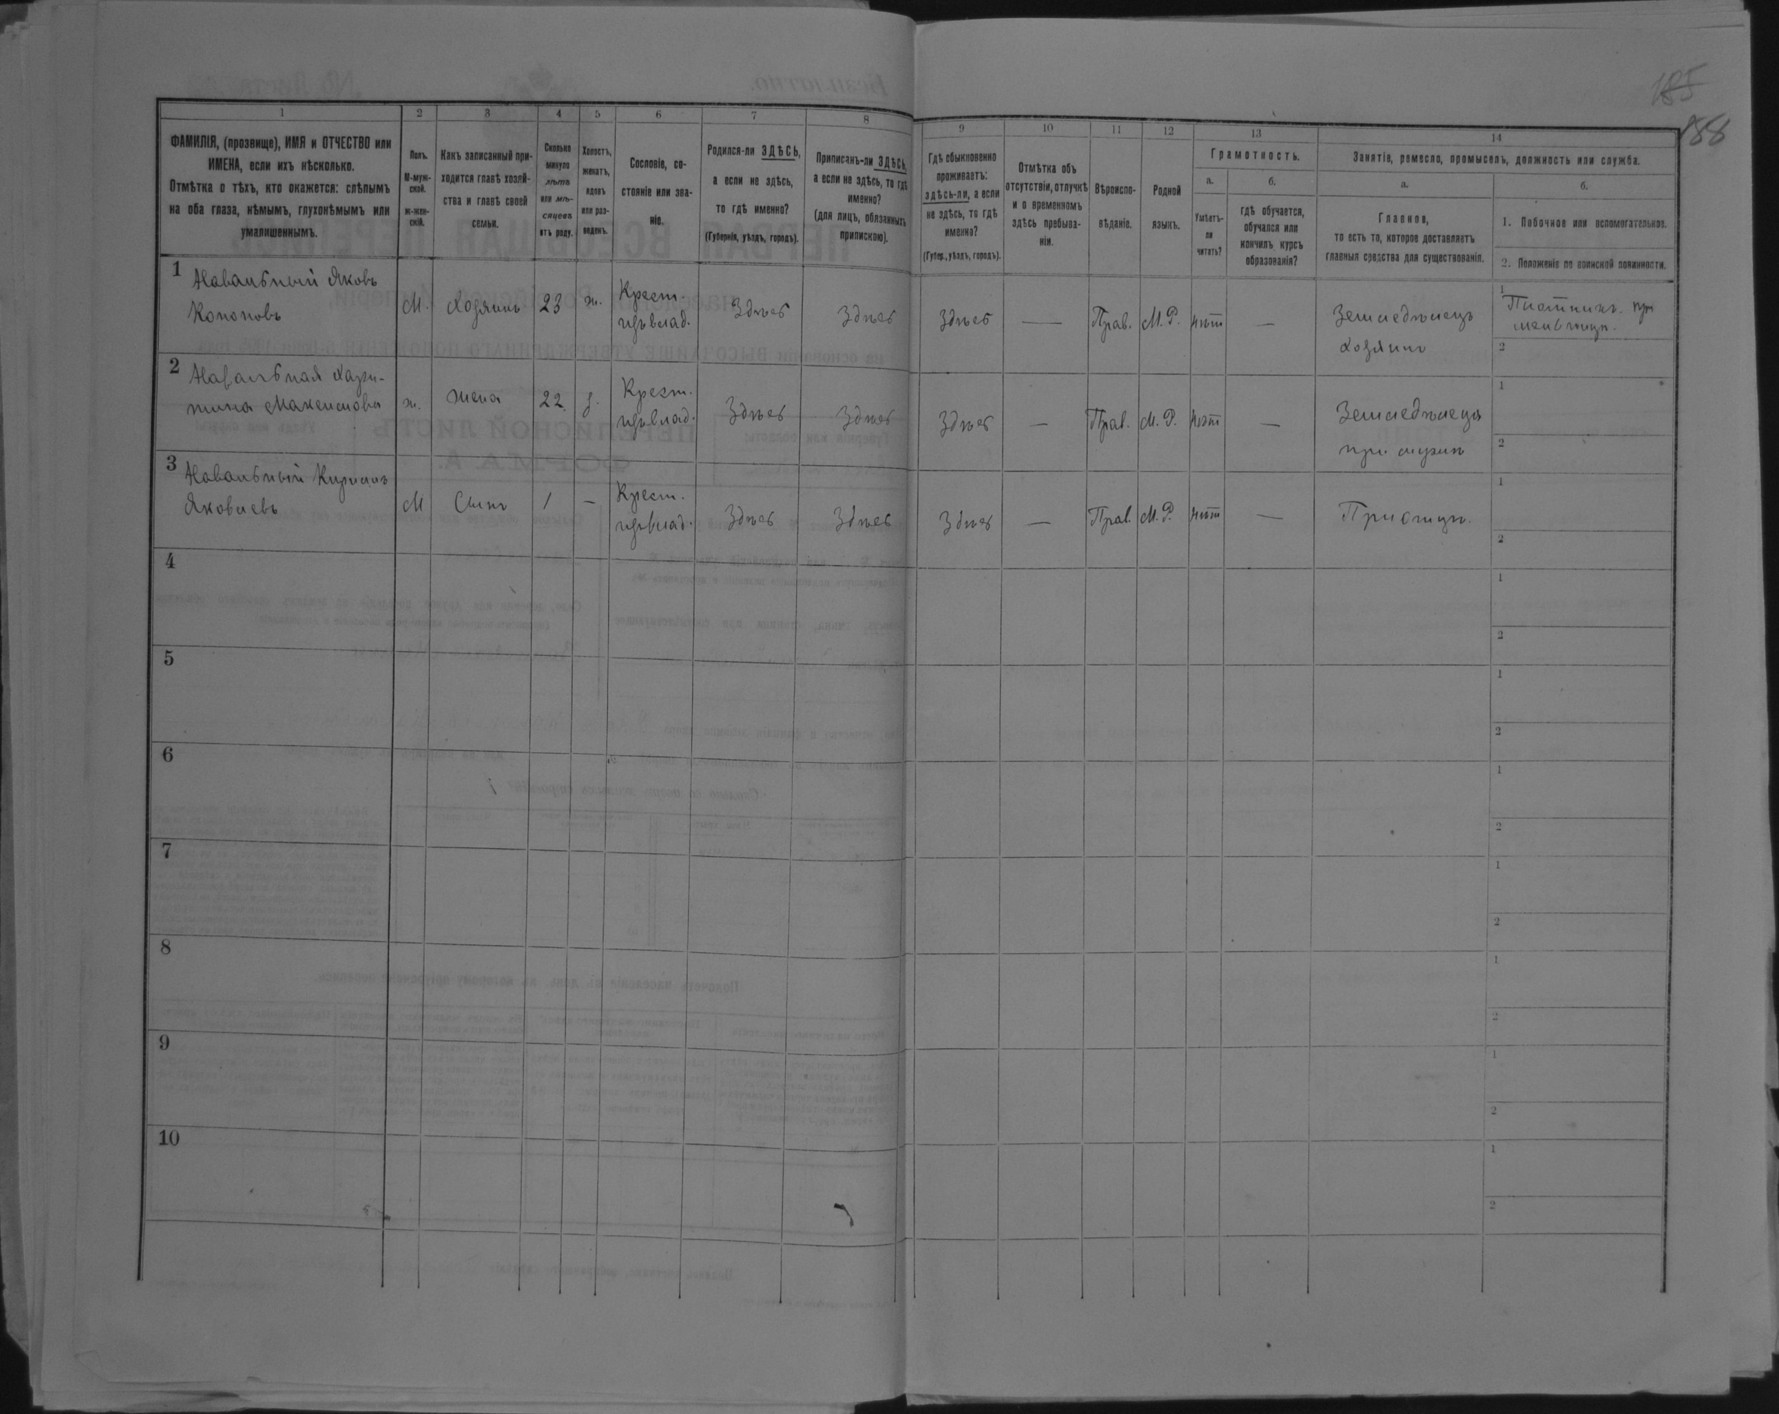 185
188
1
2
3
4
5
6
7
8
9
10
11
12
13
14
ФАМИЛІЯ, (прозвище), ИМЯ и ОТЧЕСТВО или
ИМЕНА, если ихъ нѣсколько.
Отмѣтка о тѣхъ, кто окажется: слѣпымъ
на оба глаза, нѣмымъ, глухонѣмымъ или
умалишеннымъ.
Полъ.
М-муж-
ской.
ж-жен-
скій.
Какъ записанный при-
ходится главѣ хозяй-
ства и главѣ своей
семьи.
Сколько
минуло
лѣтъ
или мѣ-
сяцевъ
отъ роду.
Холостъ,
женатъ,
вдовъ
или раз-
веденъ.
Сословіе, со-
стояніе или зва-
ніе.
Родился-ли ЗДѢСЬ,
а если не здѣсь,
то гдѣ именно?
(Губернія, уѣздъ, городъ).
Приписанъ-ли ЗДѢСЬ,
а если не здѣсь, то гдѣ
именно?
(для лицъ, обязанныхъ
припискою).
Гдѣ обыкновенно
проживаетъ:
здѣсь-ли, а если
не здѣсь, то гдѣ
именно?
(Губер., уѣздъ, городъ).
Отмѣтка объ
отсутствіи, отлучкѣ
и о временномъ
здѣсь пребыва-
ніи.
Вѣроиспо-
вѣданіе.
Родной
языкъ.
Грамотность.
а.
Умѣетъ-
ли
читать?
б.
гдѣ обучается,
обучался или
кончилъ курсъ
образованія?
Занятіе, ремесло, промыселъ, должность или служба.
а.
Главное,
то есть то, которое доставляетъ
главныя средства для существованія.
б.
1. Побочное или вспомогательное.
2. Положеніе по воинской повинности.
1
Навальный Яковъ
Кононовъ
М.
Хозяинъ
23
ж.
Крест.
изъ влад.
Здѣсь
Здѣсь
Здѣсь
—
Прав.
М. Р.
нѣт
—
Земледѣлецъ
хозяинъ
1
Плотникъ. при
2
2
Максимова
ж.
жена
22
з.
Крест.
изъ влад.
Здѣсь
Здѣсь
Здѣсь
—
Прав.
М. Р.
нѣт
—
при мужѣ
1
2
3
Навальный Кирилъ
Яковлевъ
М
Сынъ
1
—
Крест.
изъ влад.
Здѣсь
Здѣсь
Здѣсь
—
Прав.
М. Р.
нѣт
—
При отцѣ
1
2
4
1
2
5
1
2
6
1
2
7
1
2
8
1
2
9
1
2
10
1
2